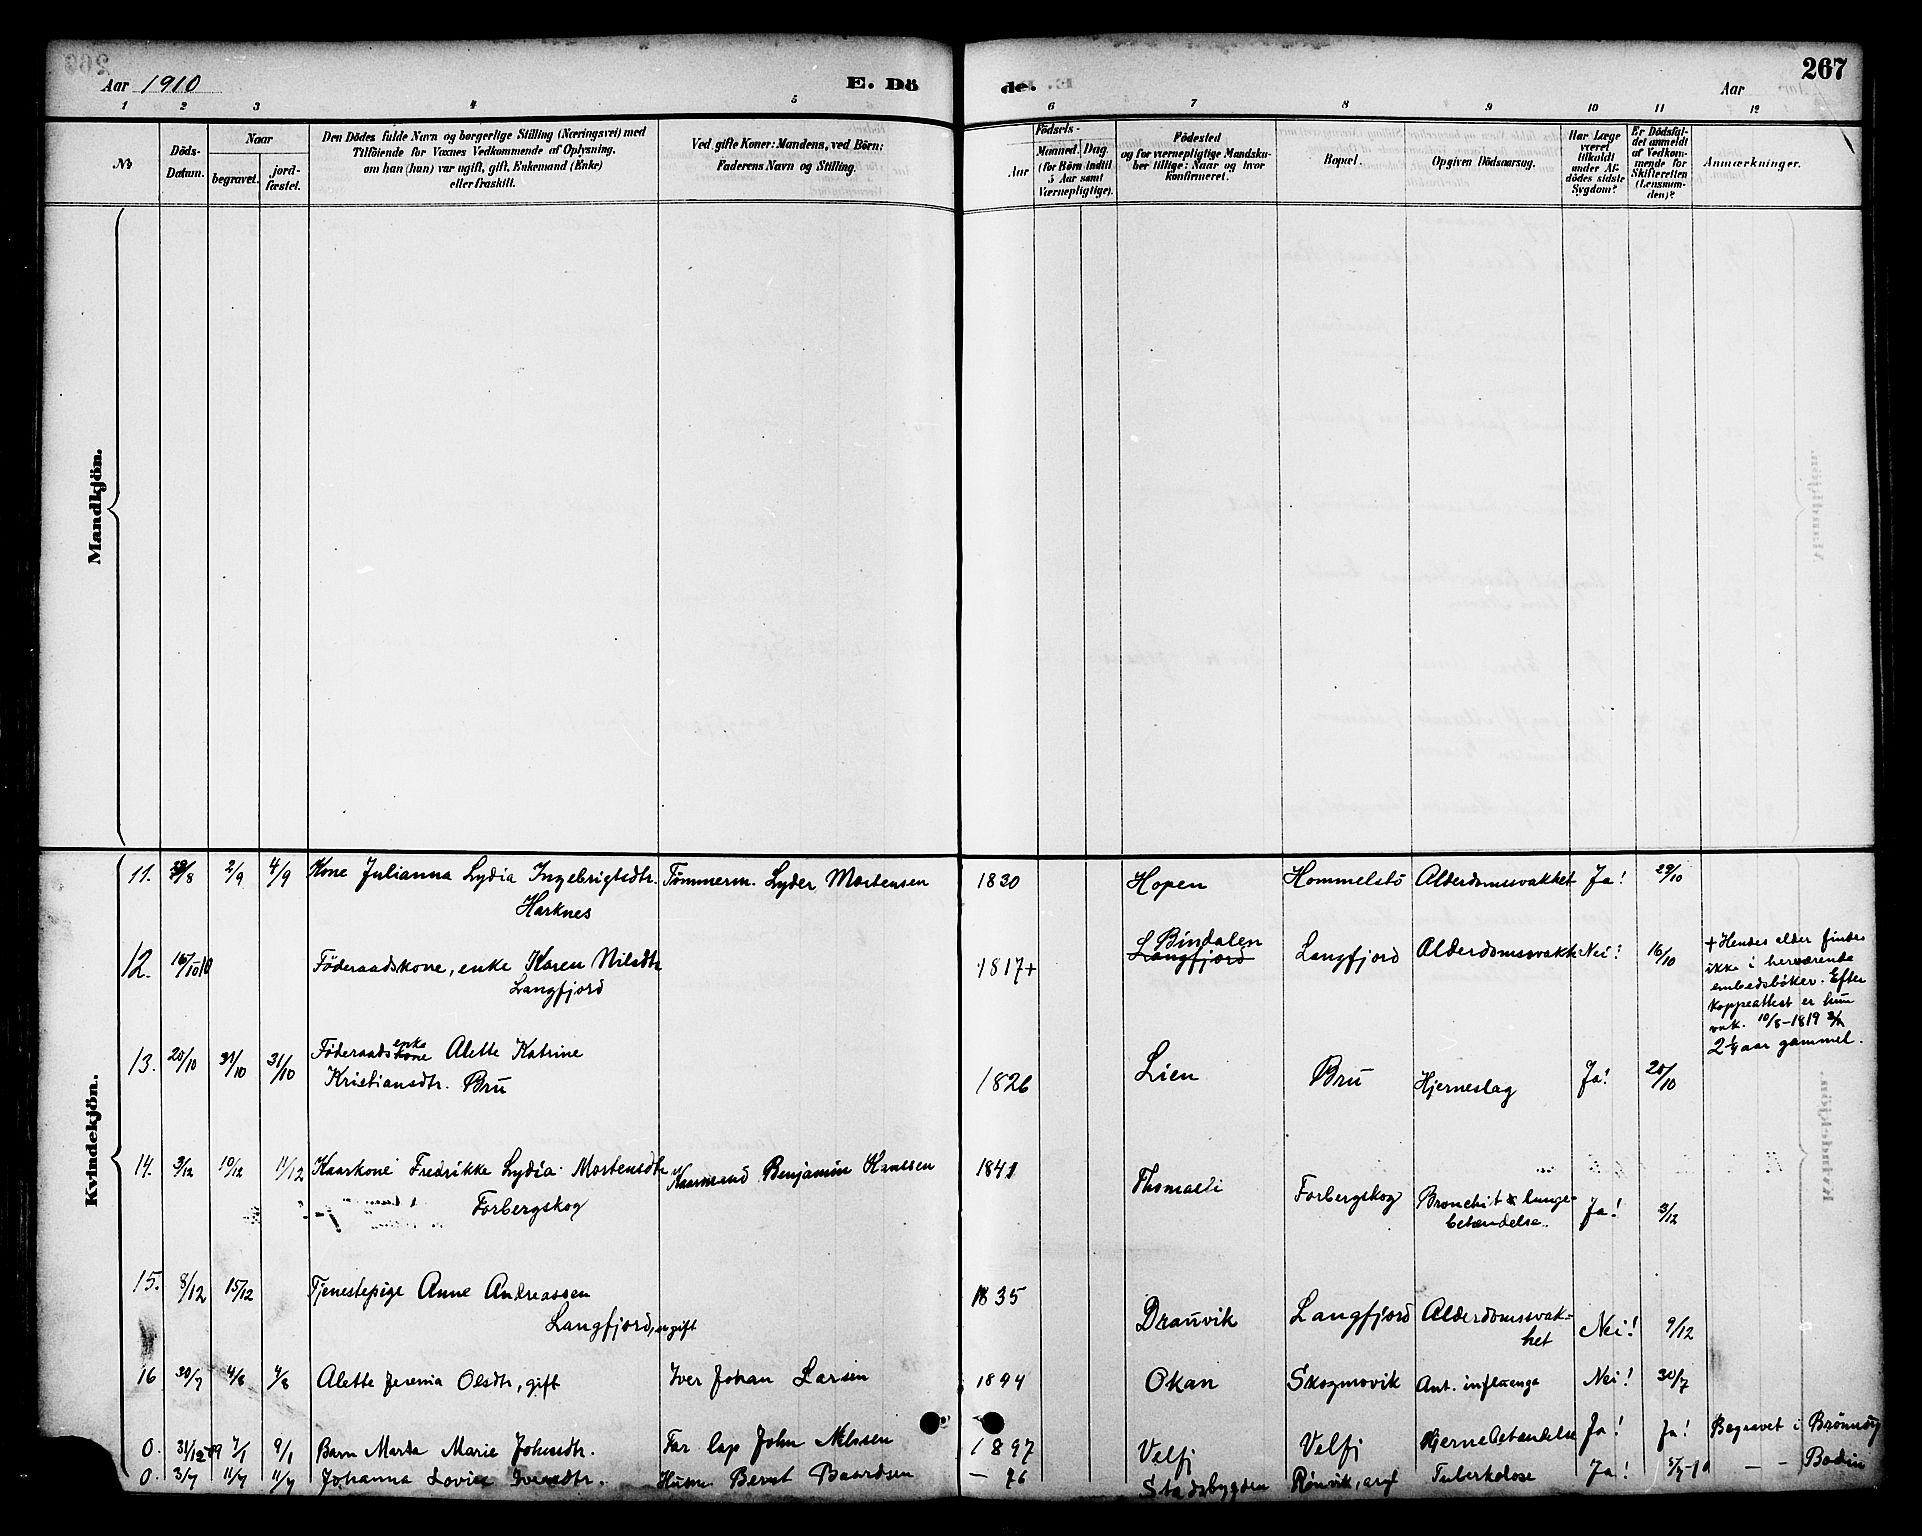 Aar 1910
E. Dö
de.
Aar
267
1 2 3 4 5 6 7 8 9 10 11 12
No
Döds-Datum.
Naar
begravet.
jord-fæstet.
Den Dödes fulde Navn og borgerlige Stilling (Næringsvei) med
Tilföiende for Voxnes Vedkommende af Oplysning,
om han (hun) var ugift, gift, Enkemand (Enke)
eller fraskilt.
Ved gifte Koner: Mandens, ved Börn:
Faderens Navn og Stilling.
Födsels-
Aar
Maaned. Dag
(for Börn indtil
5 Aar samt
Værnepligtige).
Födested
og for værnepligtige Mandska-
ber tillige: Naar og hvor
konfirmeret.
Bopæl.
Opgiven Dödsaarsag.
Har Læge
været
tilkaldt
under Af-
dödes sidste
Sygdom?
Er Dödsfal-
det anmeldt
af Vedkom-
mende for
Skifteretten
(Lensman-
den)?
Anmærkninger.
Mandkjön.
Kvindekjön.
11. 2/9 4/9 Kone Julianna Lydia Ingebrigtsdtr. Tømmerm. Lyder Mortensen 1830 Hopen Hommelstö Alderdomssvakhet Ja! 29/10
Harknes
12. 16/10 10 Föderaadskone, enke Karen Nilsdtr 1817+ Bindalen Langfjord Alderdomssvakh Nei! 16/10
Langfjord
Langfjord
+ Hendes alder findes
ikke i herværende
embedsböker. Efter
koppeattest er hun
vak. 10/8-1819
2 1/4 aar gammel.
13. 20/10 31/10 31/10 Föderaads enke kone Alette Katrine
Kristiansdtr. Bru 1826 Lien Bru Hjerneslag Ja! 20/10
14. 3/12 10/12 11/12 Kaarkone Fredrikke Lydia Mortensdtr Kaarmand Benjamin Hanssen 1841 Thomasli Forbergskog Bronchit & lunge-
betændelse. Ja! 3/12
Forbergskog
15. 8/12 15/12 Tjenestepige Anne Andreassen 1835
Langfjord, ugift Drauvik Langfjord Alderdomssvak-
het Nei! 9/12
16 30/7 4/8 4/8 Alette Jesemia Olsdtr, gift Iver Johan Larsen 1894 Okan Skogmovik Ant. influenza Nei! 30/7
0. 31/12-09 7/1 9/1 Barn Marta Marie Johnsdtr. Far lap John Nilssen 1897 Velfj Velfj Hjernebetændelse Ja! Ja! Begravet i Brönnöy
0. 3/7 11/7 11/7 Johanna Lovise Iversdtr. Husm. Bernt Baardsen — 76 Stadsbygden Rönvik, asyl Tuberkolose Ja! 5/7-10 — — Bodin